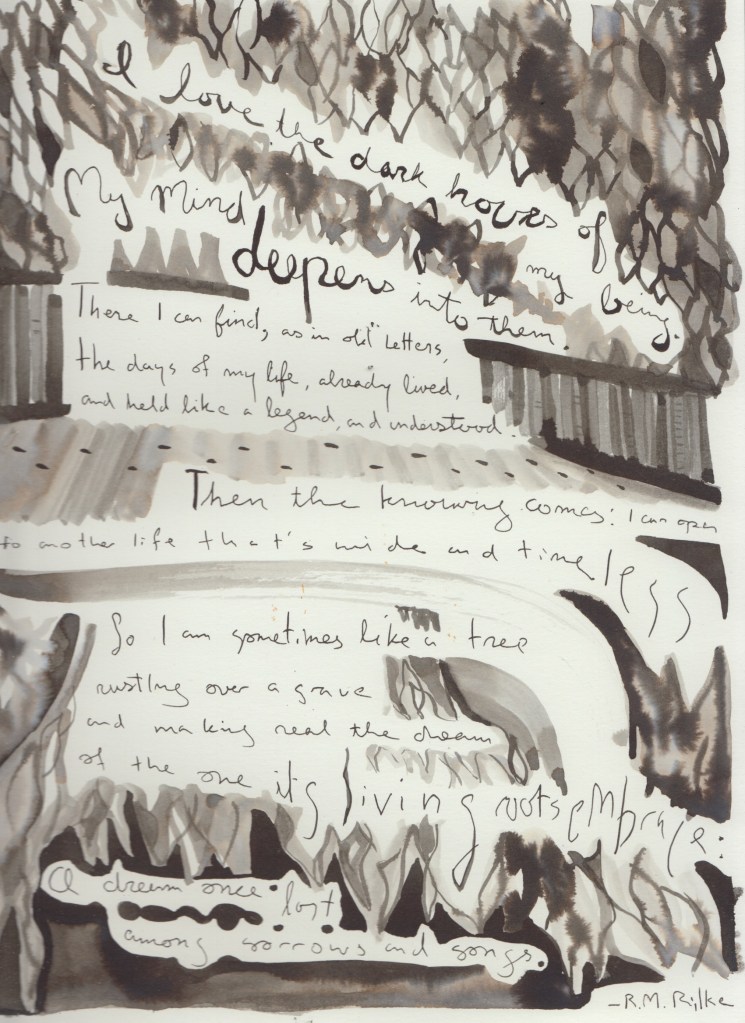 I love the dark hours of my being.
My Mind deepens into them.
There I can find, as in old letters,
the days of my life, already lived,
and held like a legend, and understood.
Then the knowing comes: I can open
to another life that's wide and timeless
So I am sometimes like a tree
rustling over a grave
and making real the dream
of the one its living roots embrace:
a dream once lost
among sorrows and songs.
-R.M. Rilke